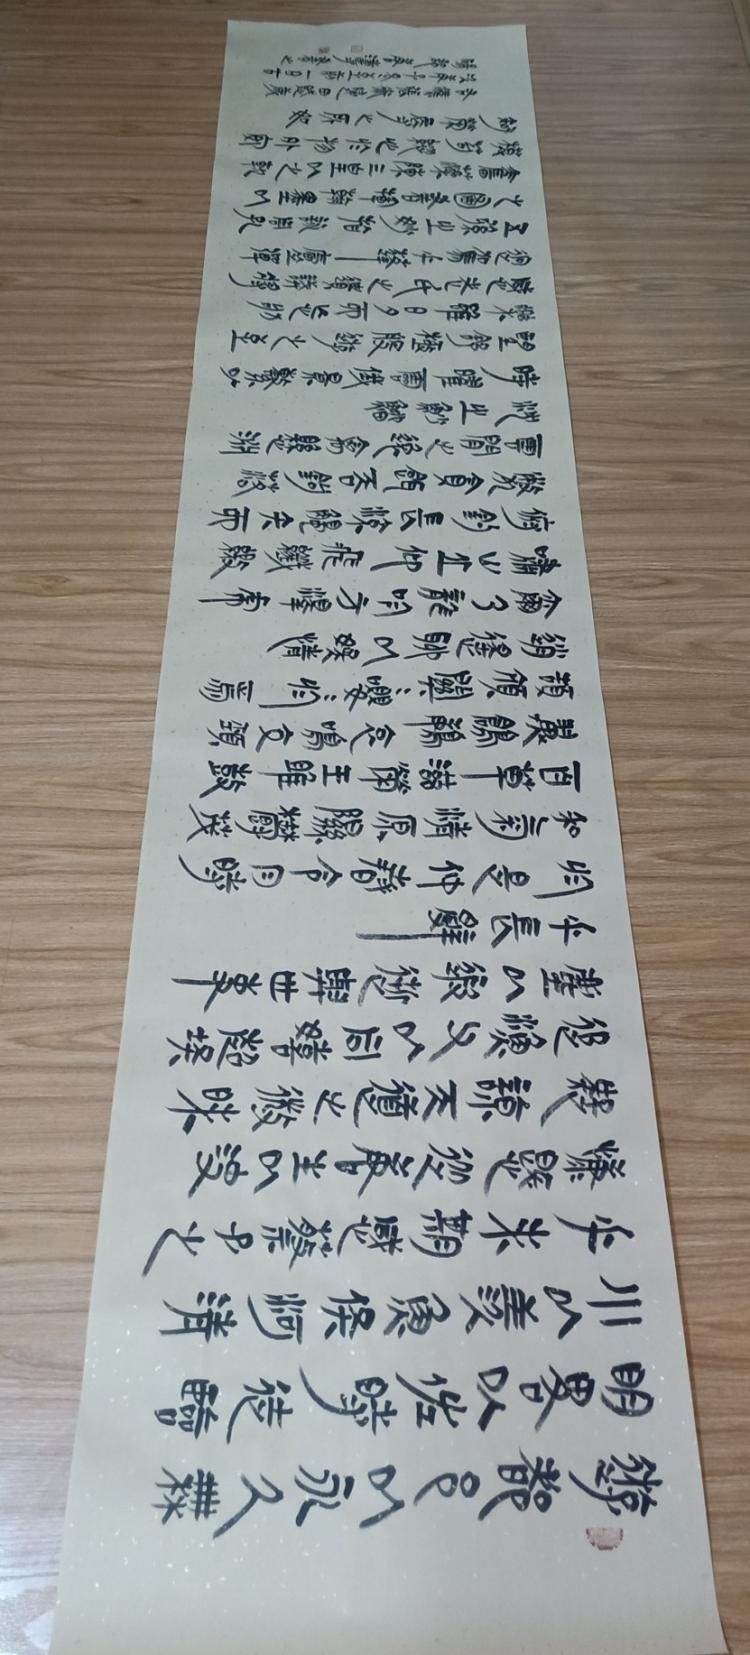 遊都邑以永久無
明略以佐時徒臨
川以羨魚俟河清
乎未期感蔡子之
慷慨從唐生以決
疑諒天道之微昧
追漁父以同嬉超埃
塵以遐逝與世事
乎長辭
於是仲春令月時
和氣清原隰鬱茂
百草滋榮王雎鼓
翼鶬鶊哀鳴交頸
頡頏關關嚶嚶於焉
逍遙聊以娛情
爾乃龍吟方澤虎
嘯山丘仰飛纖繳
俯釣長流觸矢而
斃貪餌吞鉤落
雲間之逸禽懸淵
沉之魦鰡
時曜靈俄景繫以
望舒極般遊之至
樂雖日夕而忘劬
感老氏之遺誡將
迴駕乎蓬廬彈
五弦之妙指詠周孔
之圖書揮翰墨以
奮藻陳三皇以之軌
模苟縱心於物外安
知榮辱之所如